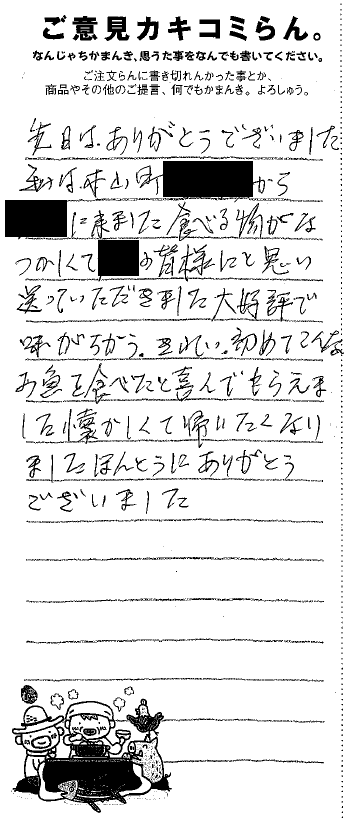 ご意見カキコミらん。
なんじゃちかまんき、思うた事をなんでも書いてください。
ご注文らんに書き切れんかった事とか、
商品やその他のご提言、何でもかまんき。よろしゅう。
先日は、ありがとうございました
私は、味山町 から
に来ました食べる物がな
つかしくて の皆様にと思い
送っていただきました大好評で
味がちがう。きれい。初めてこんな
お魚を食べたと喜んでもらえま
した懐かしくて帰りたくなり
ましたほんとうにありがとう
ございました